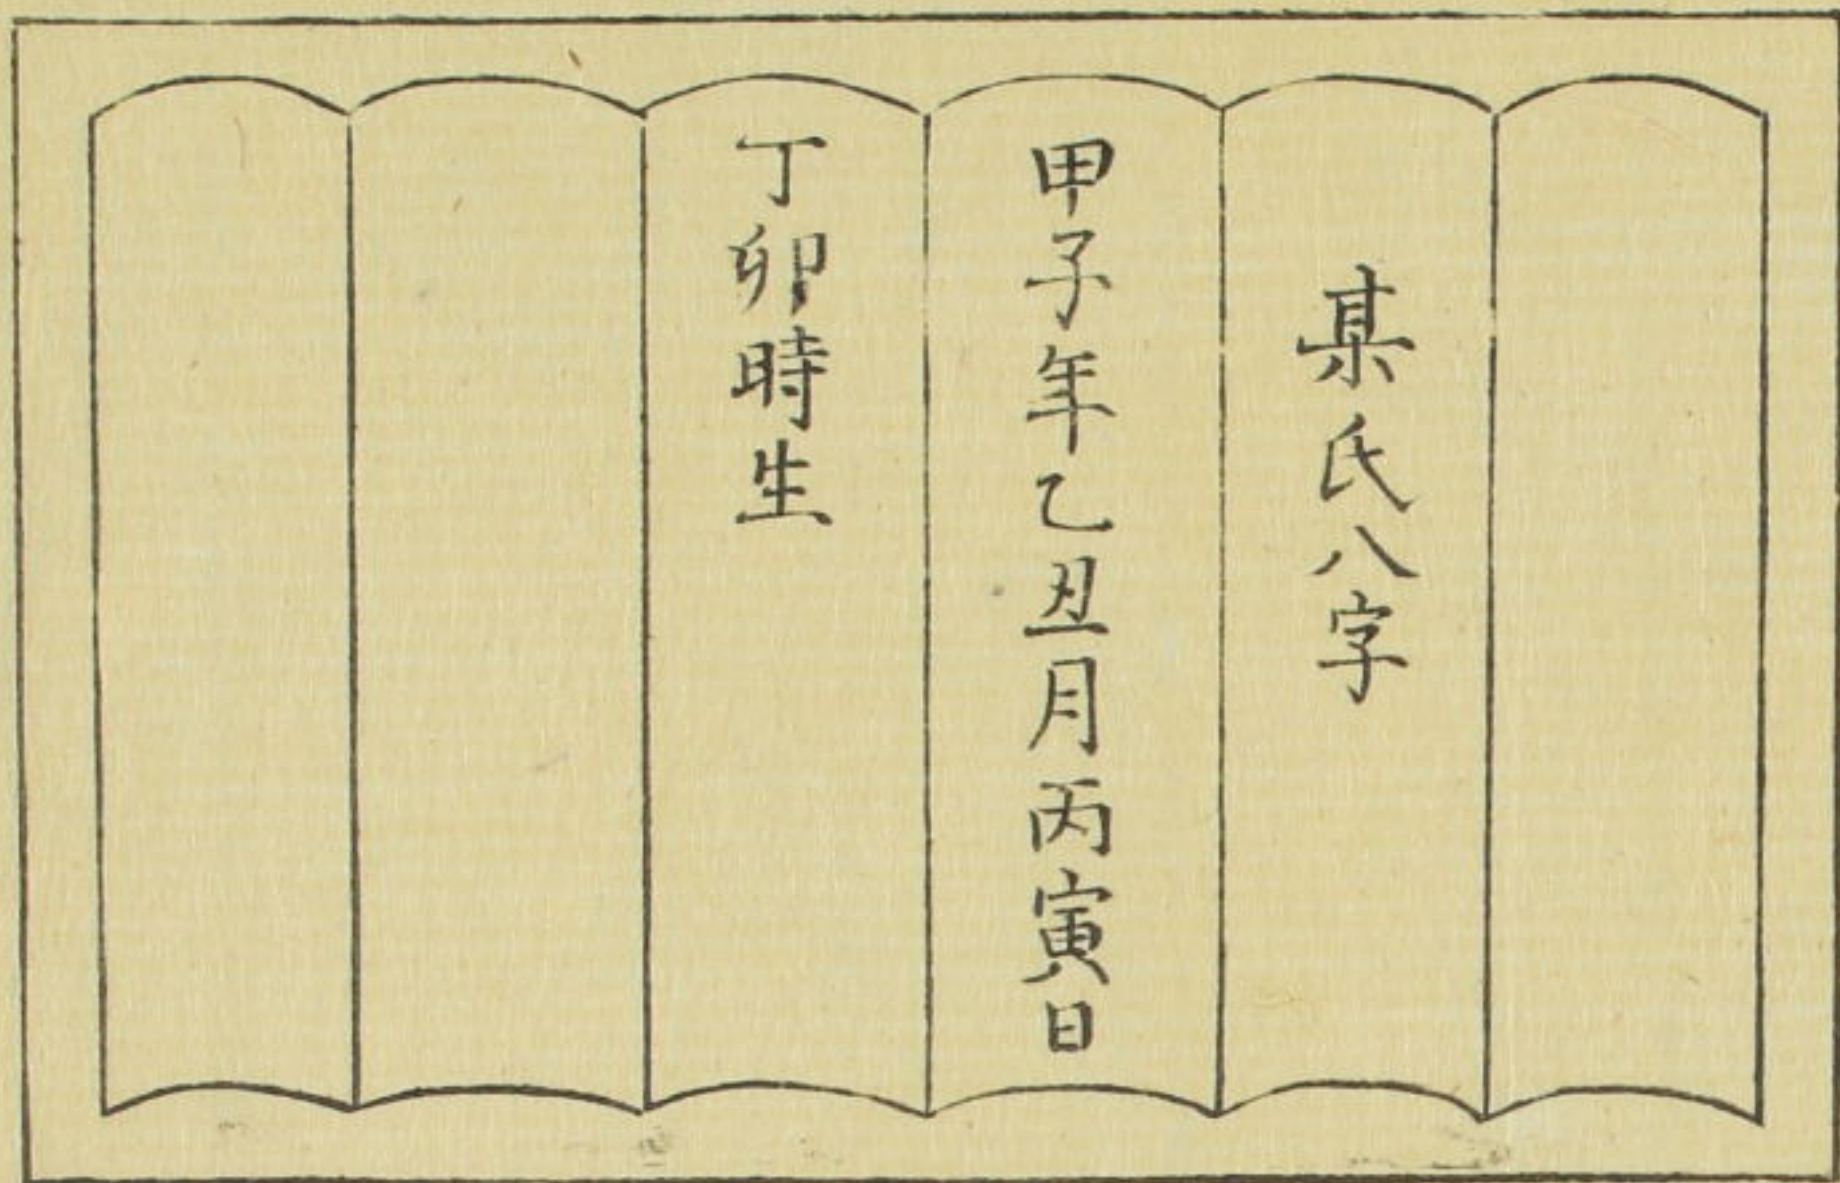 某氏八字
甲子年乙丑月丙寅日
丁卯時生